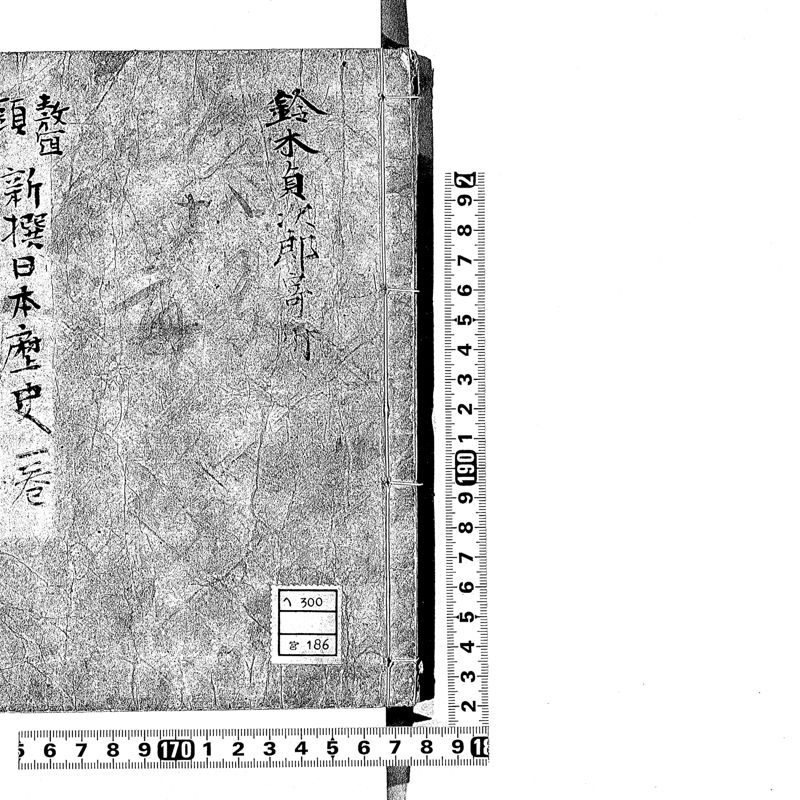 鈴木貞次郎寄附
鼇頭
新撰日本歴史 一巻
ヘ 300
宮 186
2
9
8
7
6
5
4
3
2
1
190
9
8
7
6
5
4
3
2
5 6 7 8 9 170 1 2 3 4 5 6 7 8 9 18